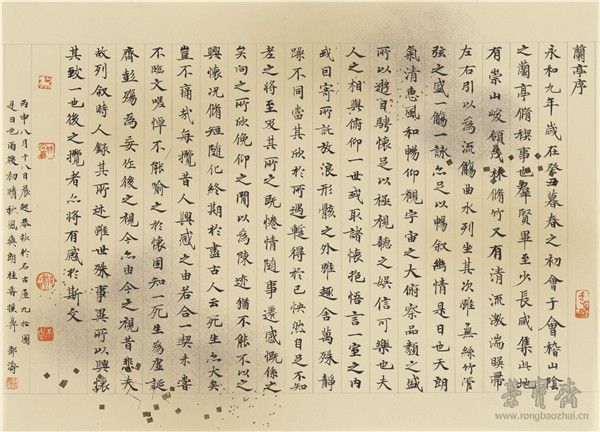 蘭亭序
永和九年歲在癸丑暮春之初會于會稽山陰
之蘭亭脩稧事也羣賢畢至少長咸集此地
有崇山峻領茂林脩竹又有清流激湍暎帶
左右引以為流觴曲水列坐其次雖無絲竹管
弦之盛一觴一詠亦足以暢叙幽情是日也天朗
氣清惠風和暢仰觀宇宙之大俯察品類之盛
所以遊目騁懷足以極視聽之娛信可樂也夫
人之相與俯仰一世或取諸懷抱悟言一室之內
或因寄所託放浪形骸之外雖趣舍萬殊靜
躁不同當其欣於所遇暫得於己快然自足不知
老之將至及其所之既惓情隨事遷感慨係之
矣向之所欣俛仰之閒以為陳迹猶不能不以之
興懷況脩短隨化終期於盡古人云死生亦大矣
豈不痛哉每攬昔人興感之由若合一契未嘗
不臨文嗟悼不能喻之於懷固知一死生為虛誕
齊彭殤為妄作後之視今亦由今之視昔悲夫
故列叙時人錄其所述雖世殊事異所以興懷
其致一也後之攬者亦將有感於斯文
丙申八月十八日晨起恭
是日也雨後初晴秋風爽朗桂香撲鼻
榮寶齋
www.rongbaozhai.cn